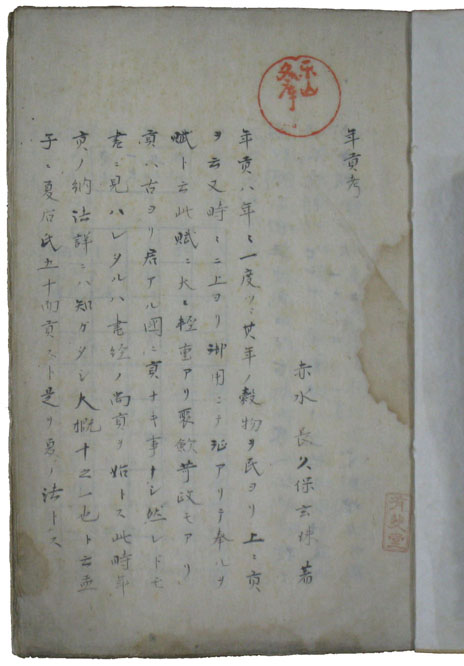 年貢考
赤水 長久保玄珠 著
年貢ハ年々一度ツヽ其年ノ穀物ヲ民ヨリ上ニ貢
ヲ云又時々ニ上ヨリ御用ニテ アリテ奉ルヲ
賦ト云此賦ニ大ニ軽重アリ 歛苛政モアリ
貢ハ古ヨリ君アル國ニ貢ナキ事ナシ然レドモ
書ニ見ハレタルハ書經ノ禹貢ヲ始トス此時年
貢ノ納法詳ニハ知ガタシ大概十之一也ト云孟
子ニ夏后氏五十而貢スト是ヲ夏ノ法トス